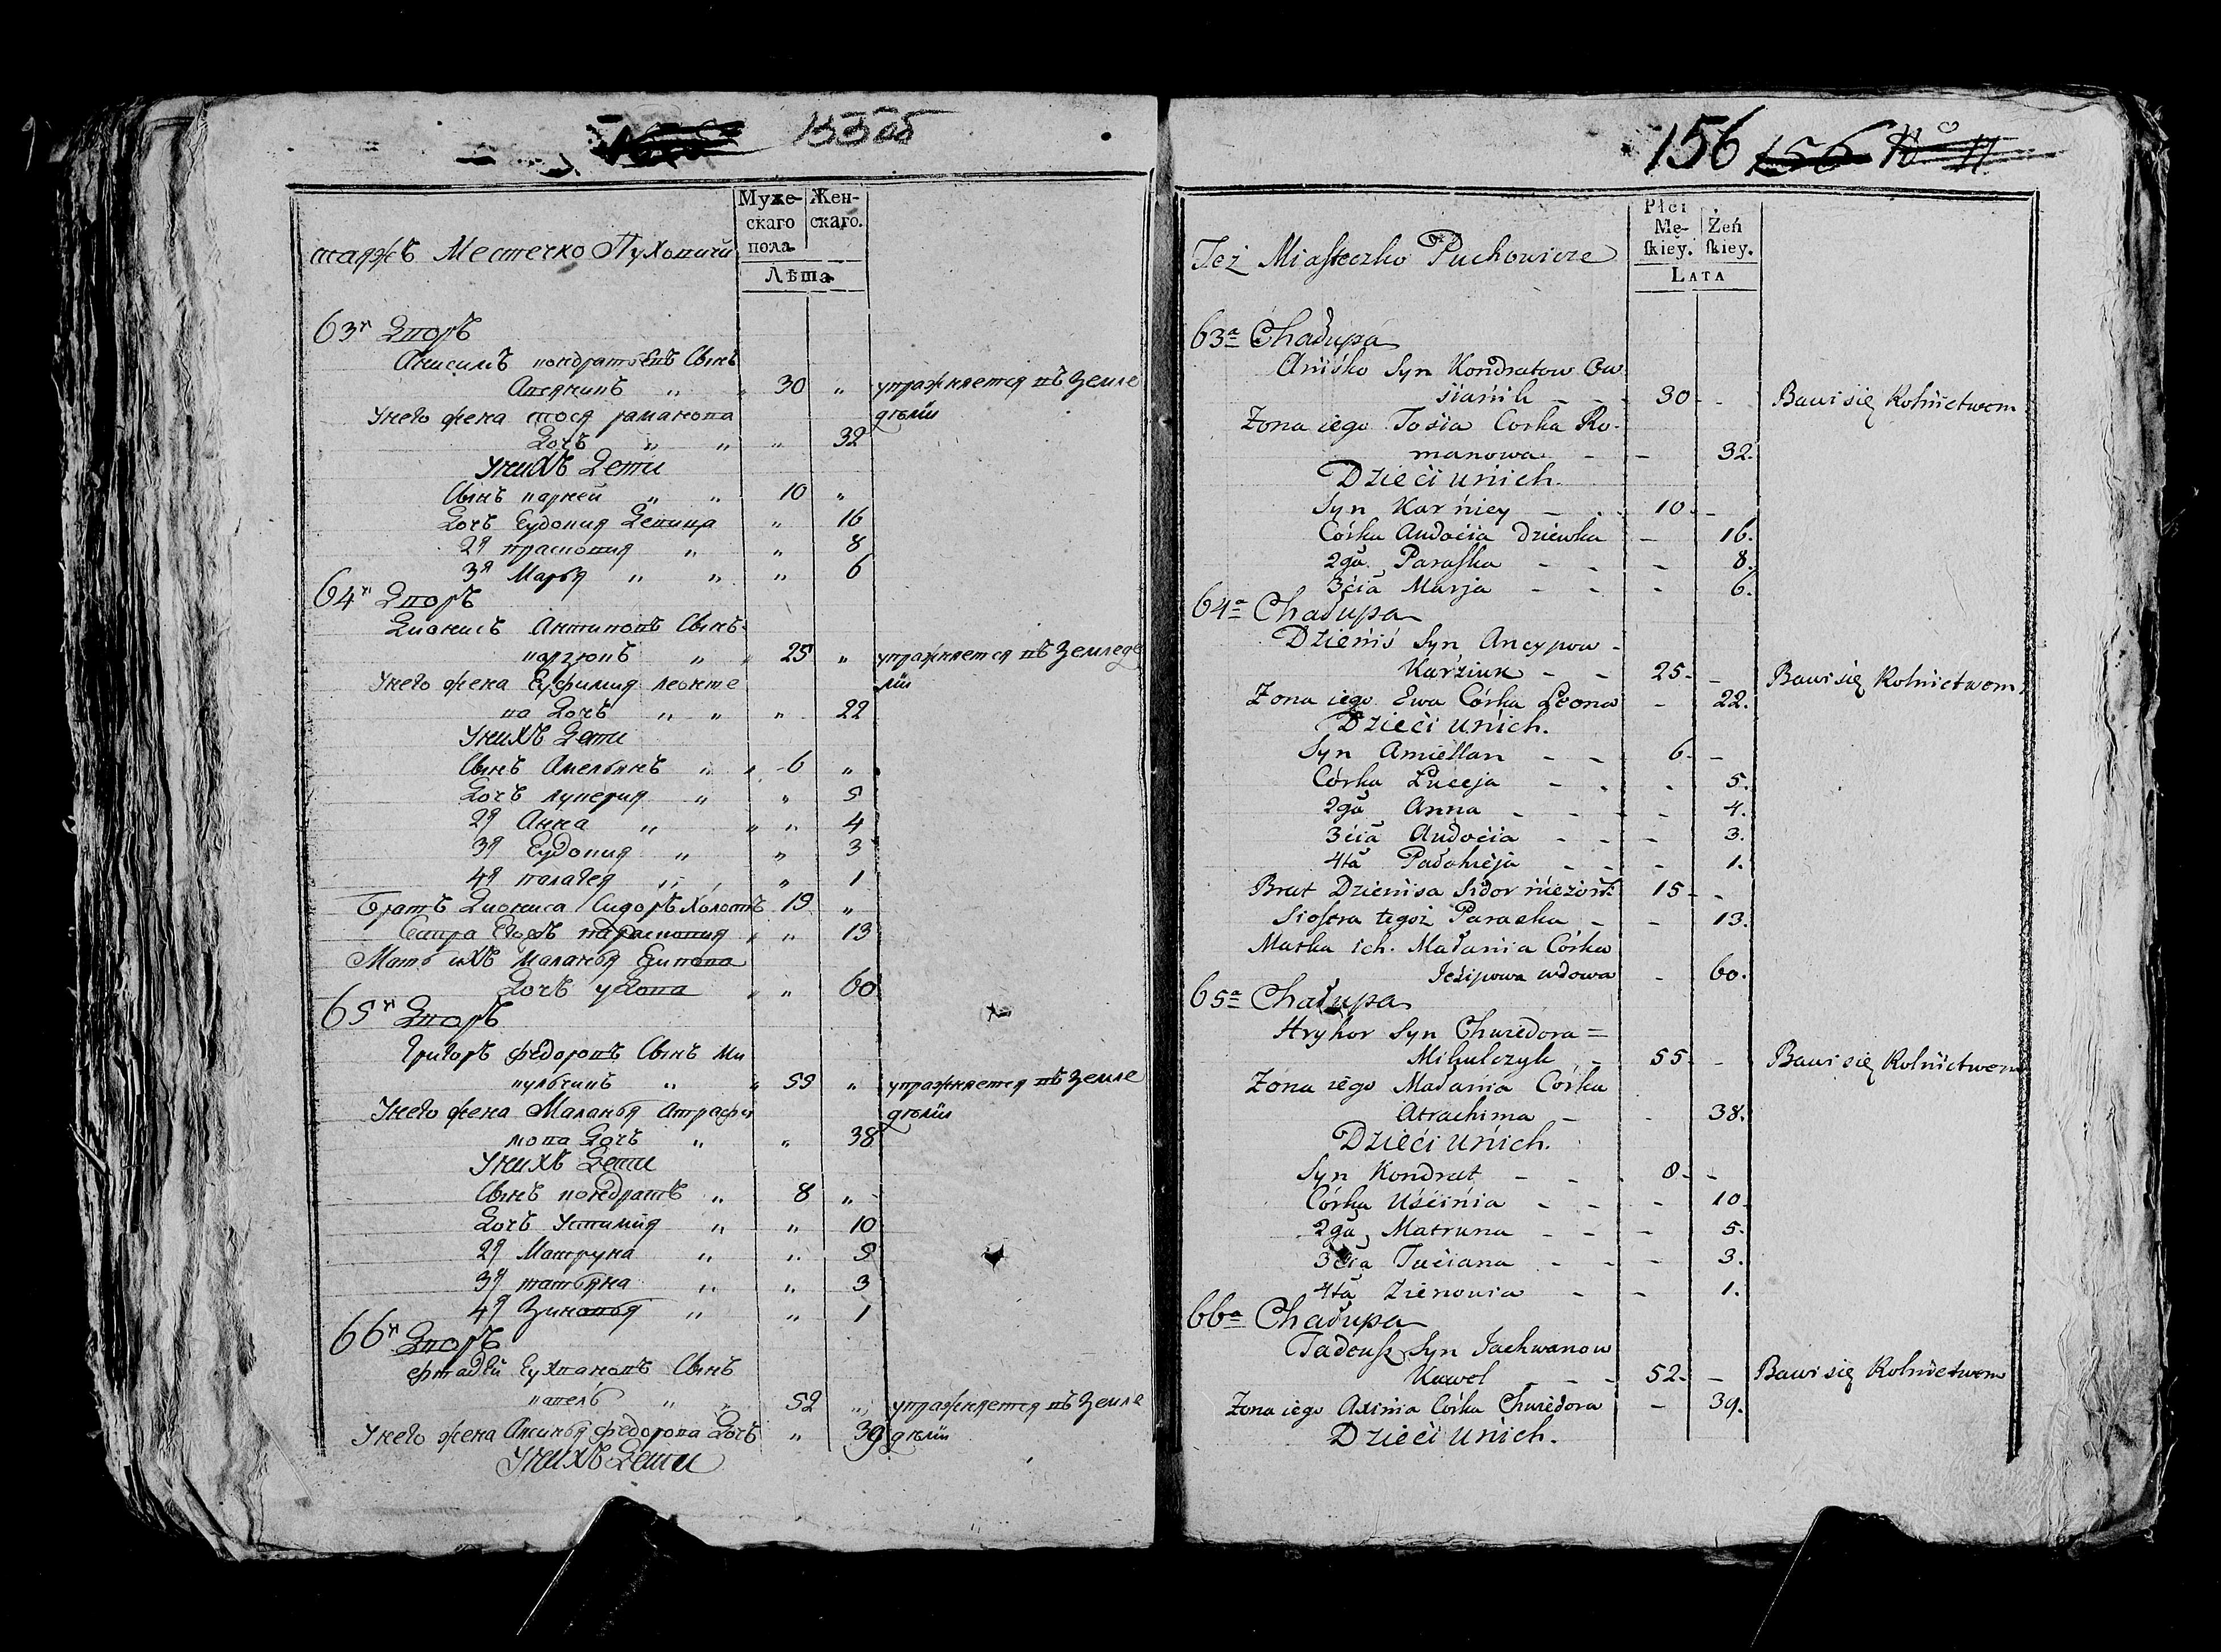 155об
Муже-
скаго
пола
Жен-
скаго.
Лѣта
тажъ Местечко Пуховичи
63й Дворъ
Анисимъ кондратовъ Сынъ
Авсяникъ „ „ 30 „ упражняется въ Земле
Унего жена тося романова дѣлiи
Дочь „ „ „ 32
Унихъ Дети
Сынъ карней „ „ 10 „
Дочь Еудокия Девица „ 16
2я прасковия „ „ 8
3я Марья „ „ „ 6
64й Дворъ
Дионисъ Антиповъ Сынъ
карзюкъ „ „ 25 „ упражняется въ Земледе
Унего жена Еуфимия леонте лiи
ва Дочь „ „ „ 22
Унихъ Дети
Сынъ Амельянъ „ „ 6 „
Дочь лукерия „ „ 5
2я Анна „ „ „ 4
3я Еудокия „ „ 3
4я палагея „ „ „ 1
Братъ Диониса Сидоръ Холостъ 19 „
Сестра Егожъ парасковия „ „ 13
Мать ихъ Маланья Есипова
Дочь удова „ „ 60
65й Дворъ
Григоръ федоровъ Сынъ Ми
кульчикъ „ „ 55 „ упражняется въ Земле
Унего жена Маланья Атрафи дѣлiи
мова Дочь „ „ 38
Унихъ Дети
Сынъ кондратъ „ 8 „
Дочь Устимия „ „ 10
2я Матруна „ „ 5
3я татьяна „ „ 3
4я Зиновья „ „ 1
66й Дворъ
фтадей Еухвановъ Сынъ
кавель „ „ 52 „ упражняется въ Земле
Унего жена Аксинья федорова Дочь „ 39 дѣлiи
Унихъ Дети
156 156
Płci
Mę-
ſkiey.
Żeń
ſkiey.
LATA
Też Miaſteczko Puchowicze
63a Chałupa
Aniśko Syn Kondratow Ow
sianik - - 30 - - Bawi się Rolnictwem
Żona iego Tosia Corka Ro-
manowa - - 32.
Dzieci unich.
Syn Karniey - - 10 - -
Córka Audocia dziewka - 16.
2ga Paraſka - - - 8.
3cia Marja - - - 6.
64a Chałupa
Dzienis Syn Ancypow -
Karziuk - - 25 - - Bawi się Rolnictwem
Żona iego Ewa Córka Leona - 22.
Dzieci unich.
Syn Amiellan - - 6 - -
Córka Łuceja - - - 5.
2ga Anna - - - - 4.
3cia Audocia - - - 3.
4ta Pałahieja - - - 1.
Brat Dzienisa Sidor nieżon: 15 - -
Sioſtra tegoż Paraska - - 13.
Matka ich Małania Córka
Jesipowa wdowa - 60.
65a Chałupa
Hryhor Syn Chwiedora =
Mikulczyk - 55 - - Bawi się Rolnictwem
Żona iego Małania Córka
Atrachima - - 38.
Dzieci unich.
Syn Kondrat - - 8 - -
Córka Uścinia - - - 10
2ga Matruna - - - 5.
3cia Taciana - - - 3.
4ta Zienowia - - 1.
66a Chałupa
Tadeuſz Syn Jachwanow
Kawel - - - 52 - - Bawi się Rolnictwem
Żona iego Axinia Córka Chwiedora - 39.
Dzieci unich.